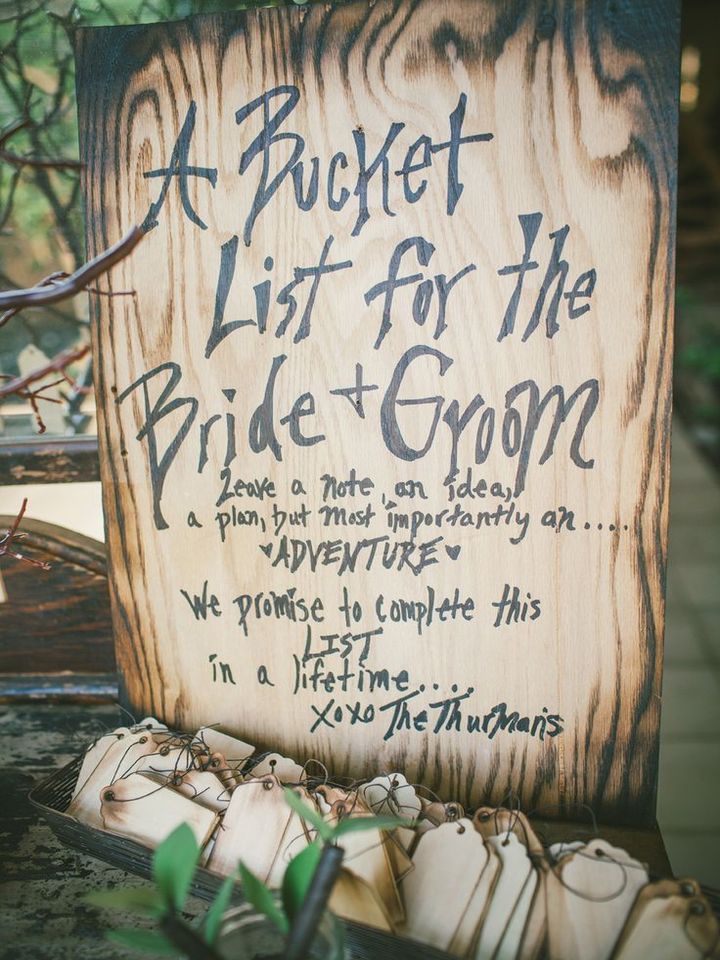 A Bucket
List for the
Bride + Groom
Leave a note, an idea,
a plan, but most importantly an....
♥ADVENTURE♥
We promise to complete this
LIST
in a lifetime....
xoxo The Thurmans